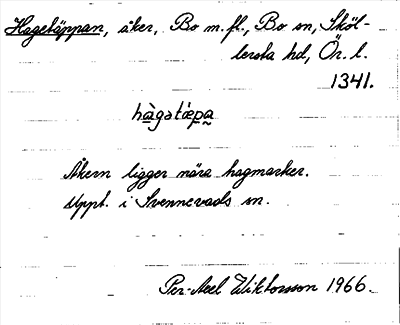 Hagetäppan, åker, Bo m.fl., Bo sn, Sköl-
lersta hd, Ör. l.
1341.
hàgətæ̀pa
Åkern ligger nära hagmarker.
Uppt. i Svennevads sn.
Per-Axel Wiktorsson 1966.